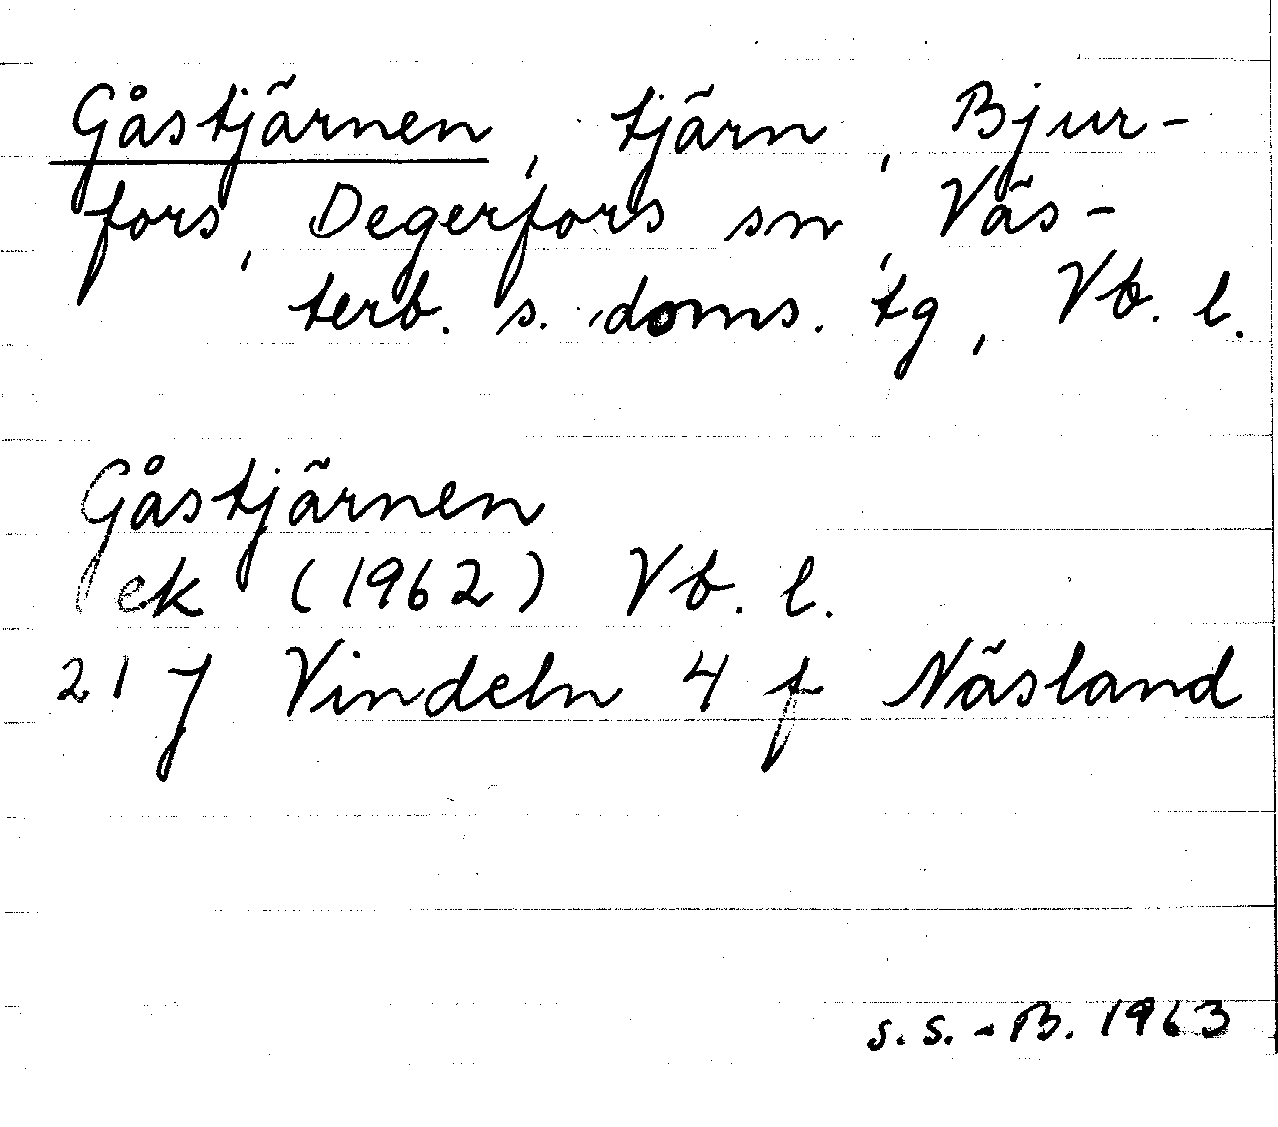 Gåstjärnen, tjärn, Bjur-
fors, Degerfors sn, Väs-
terb. s. doms. tg, Vb. l.
Gåstjärnen
ek (1962) Vb. l.
21 J Vindeln 4 f Näsland
S. S.-B. 1963